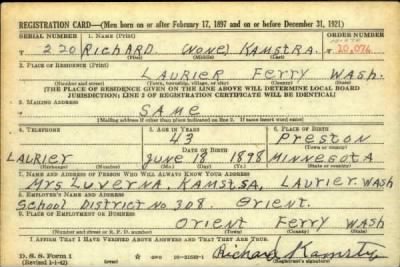 REGISTRATION CARD—(Men born on or after February 17, 1897 and on or before December 31, 1921)
SERIAL NUMBER 1. NAME (Print) ORDER NUMBER
220 RICHARD (NONE) KAMSTRA 10,076
2. PLACE OF RESIDENCE (Print)
LAURIER FERRY WASH.
(Number and street) (Town, township, village, or city) (County) (State)
[THE PLACE OF RESIDENCE GIVEN ON THE LINE ABOVE WILL DETERMINE LOCAL BOARD
JURISDICTION; LINE 2 OF REGISTRATION CERTIFICATE WILL BE IDENTICAL]
3. MAILING ADDRESS
SAME
[Mailing address if other than place indicated on line 2. If same insert word same]
4. TELEPHONE 5. AGE IN YEARS 6. PLACE OF BIRTH
43 Preston
DATE OF BIRTH
LAURIER June 18 1898 MINNESOTA
(Exchange) (Number) (Mo.) (Day) (Yr.) (State or country)
7. NAME AND ADDRESS OF PERSON WHO WILL ALWAYS KNOW YOUR ADDRESS
Mrs Luverna, Kamstsa, Laurier, Wash
8. EMPLOYER'S NAME AND ADDRESS
School District No 308. Orient.
9. PLACE OF EMPLOYMENT OR BUSINESS
Orient Ferry Wash
(Number and street or R. F. D. number) (Town) (County) (State)
I AFFIRM THAT I HAVE VERIFIED ABOVE ANSWERS AND THAT THEY ARE TRUE.
D. S. S. Form 1 Richard Kamstra
(Revised 1-1-42) (over) (Registrant's signature)